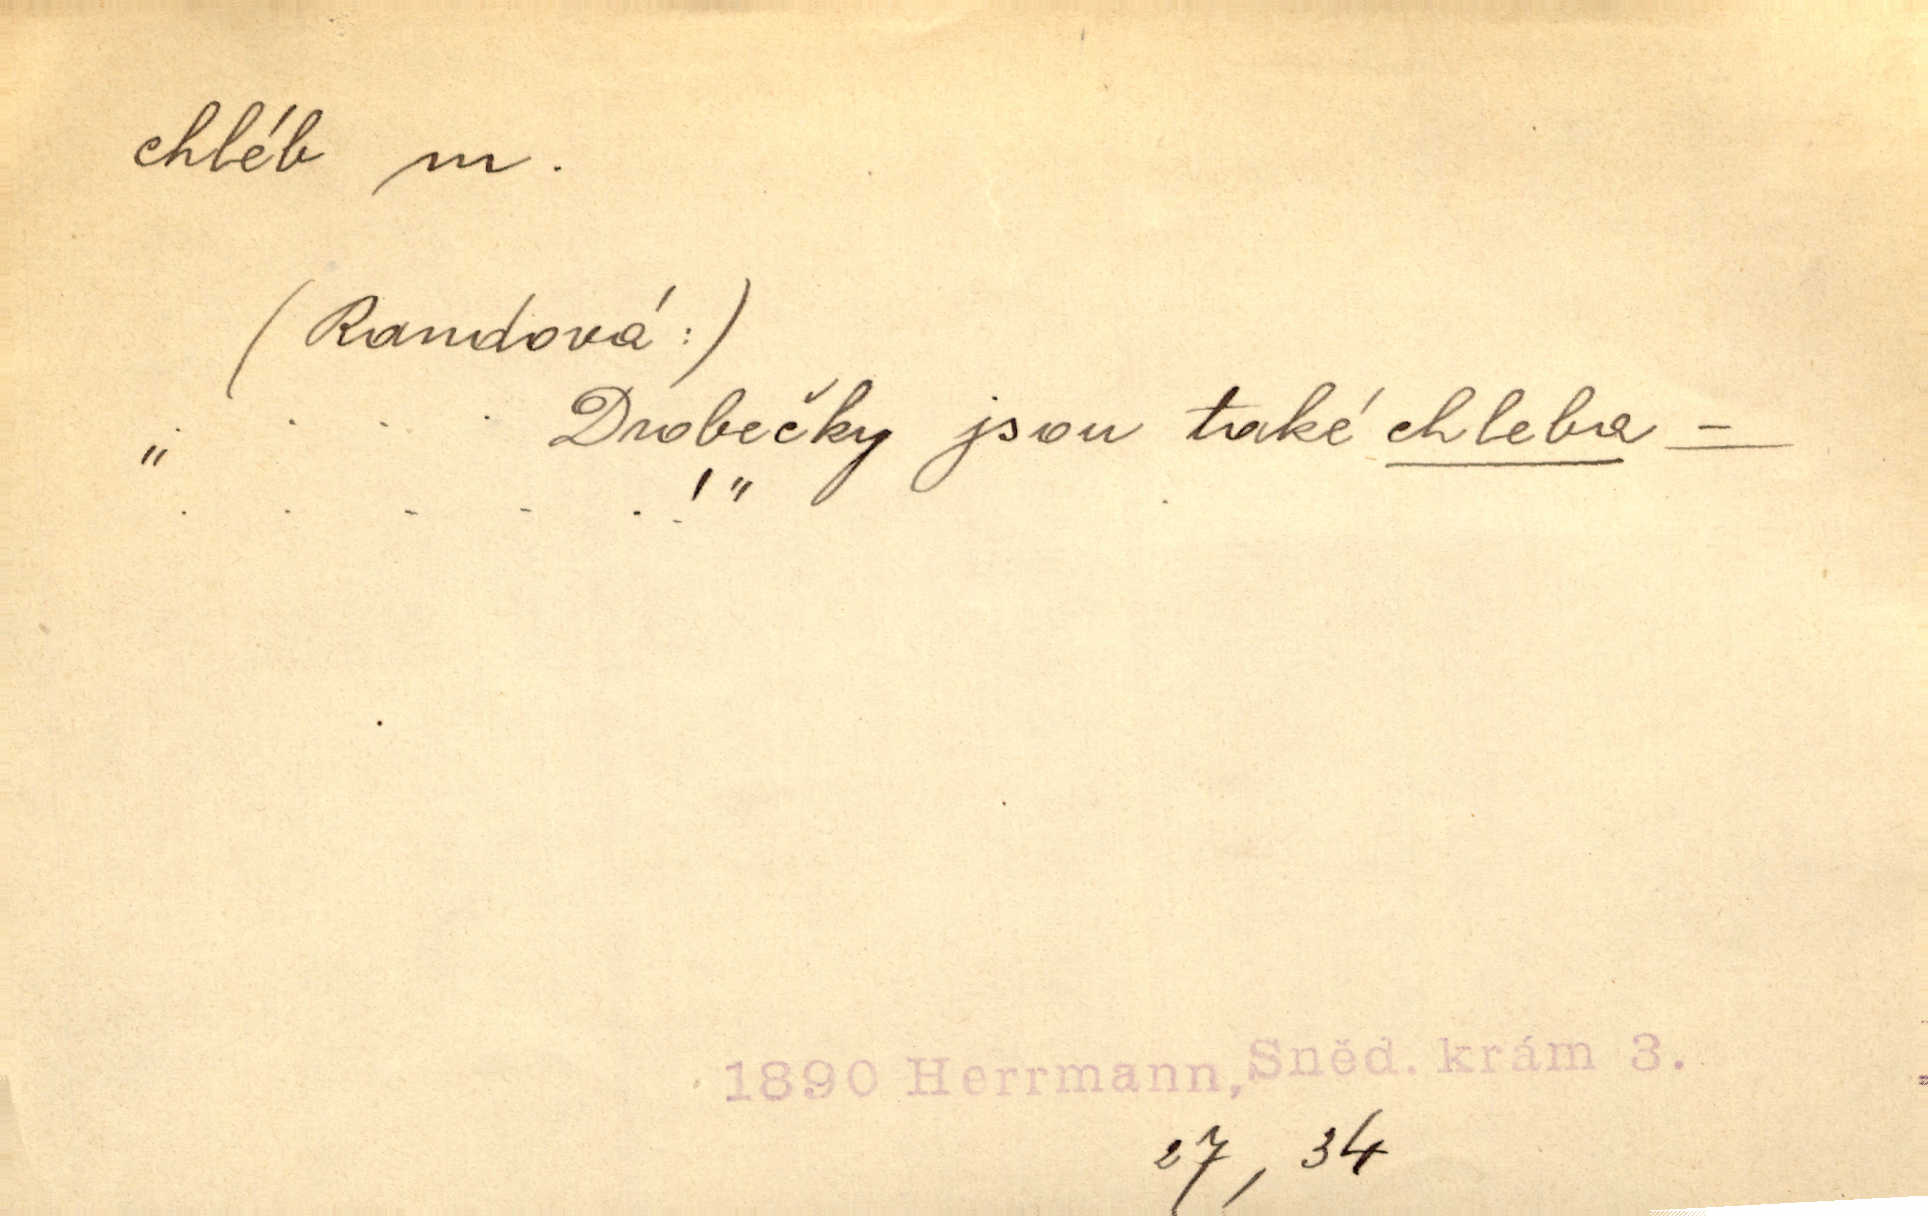 chléb m.
(Randová:)
„ . . . . Drobečky jsou také chleba –
. . . . . !"
1890 Herrmann, Sněd. krám 3.
27, 34